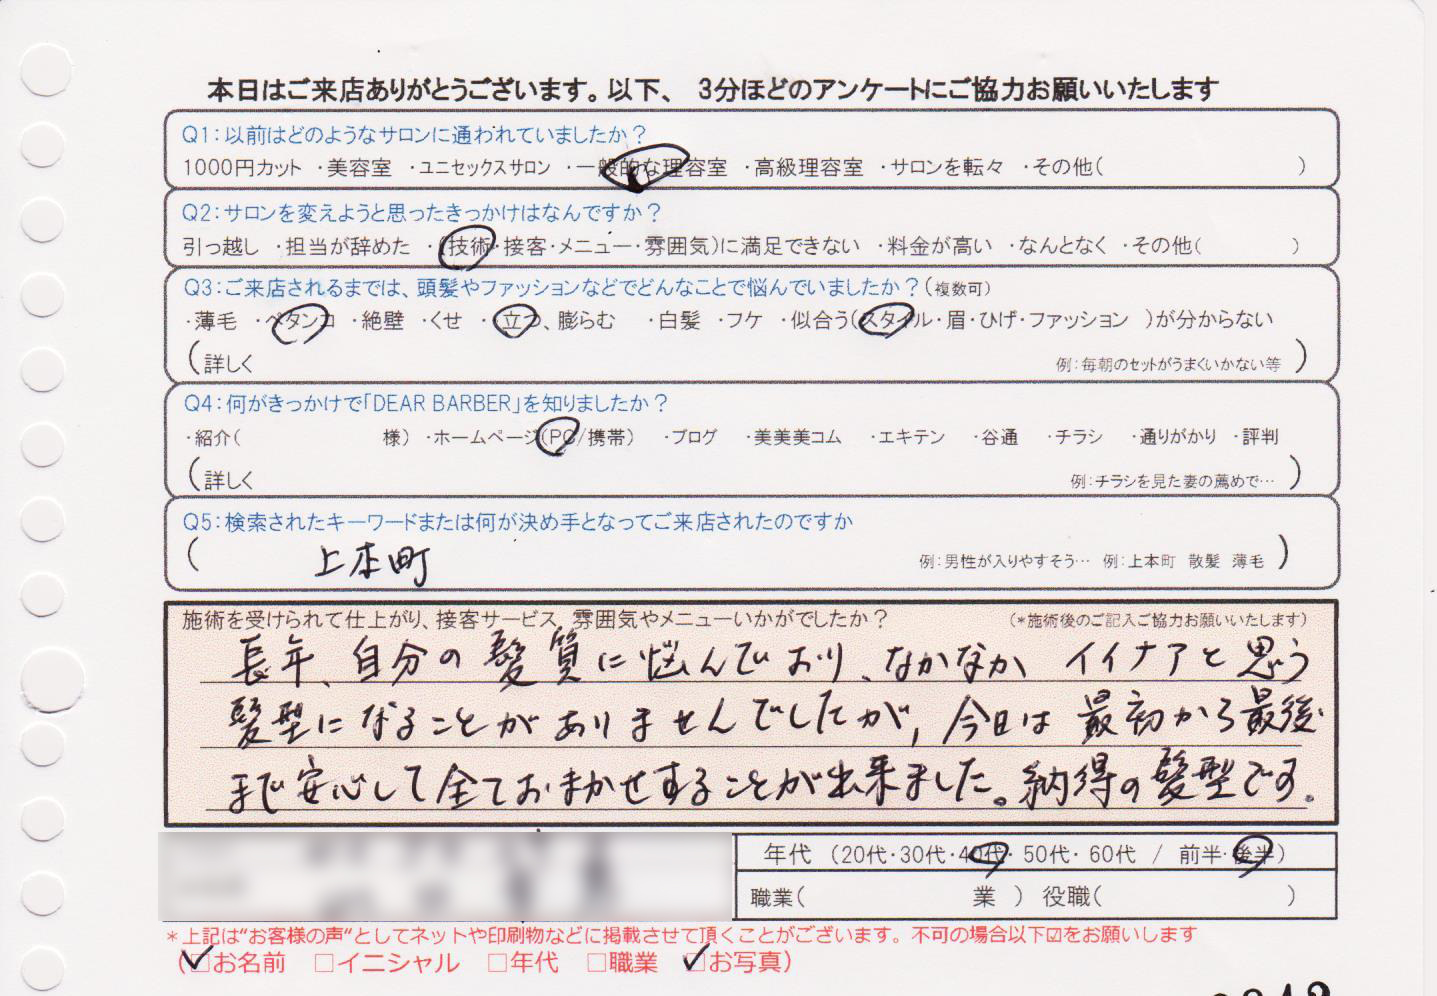 本日はご来店ありがとうございます。以下、 3分ほどのアンケートにご協力お願いいたします
Q1:以前はどのようなサロンに通われていましたか？
1000円カット ・美容室 ・ユニセックスサロン ・一般的な理容室 ・高級理容室 ・サロンを転々 ・その他( )
Q2:サロンを変えようと思ったきっかけはなんですか？
引っ越し ・担当が辞めた ・(技術・接客・メニュー・雰囲気)に満足できない ・料金が高い ・なんとなく ・その他( )
Q3:ご来店されるまでは、頭髪やファッションなどでどんなことで悩んでいましたか？(複数可)
・薄毛 ・ペタンコ ・絶壁 ・くせ ・立つ、膨らむ ・白髪 ・フケ ・似合う(スタイル・眉・ひげ・ファッション )が分からない
(詳しく 例:毎朝のセットがうまくいかない等 )
Q4:何がきっかけで「DEAR BARBER」を知りましたか？
・紹介( 様) ・ホームページ(PC/携帯) ・ブログ ・美美美コム ・エキテン ・谷通 ・チラシ ・通りがかり ・評判
(詳しく 例:チラシを見た妻の薦めで… )
Q5:検索されたキーワードまたは何が決め手となってご来店されたのですか
( 上本町 例:男性が入りやすそう… 例:上本町 散髪 薄毛 )
施術を受けられて仕上がり、接客サービス、雰囲気やメニューいかがでしたか？ (*施術後のご記入ご協力お願いいたします)
長年、自分の髪質に悩んでおり、なかなか イイナアと思う
髪型になることがありませんでしたが、今日は最初から最後
まで安心して全ておまかせすることが出来ました。納得の髪型です。
年代 (20代・30代・40代・50代・60代 / 前半・後半)
職業( 業 ) 役職( )
*上記は“お客様の声“としてネットや印刷物などに掲載させて頂くことがございます。不可の場合以下☑をお願いします
(☑お名前 □イニシャル □年代 □職業 ☑お写真)